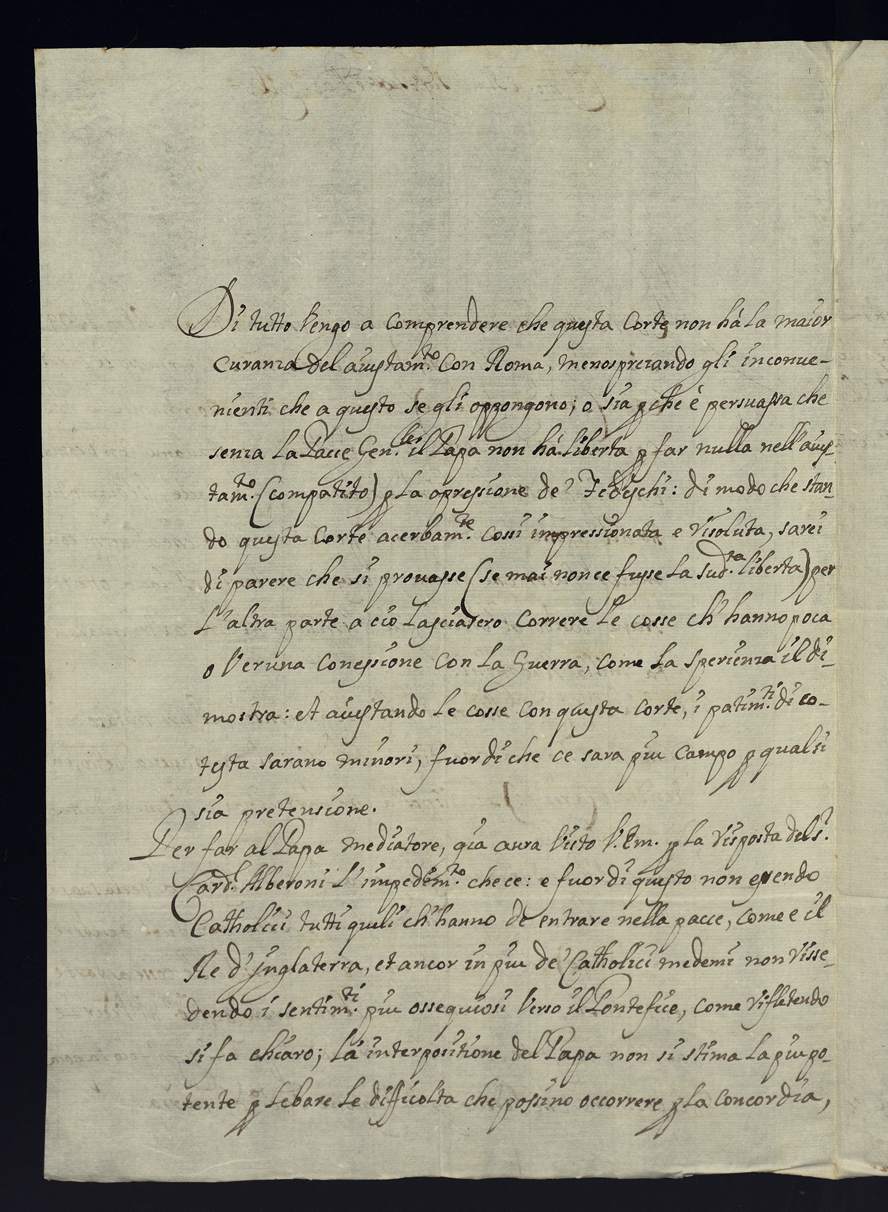 Di tutto Vengo a comprendere che questa Corte non há la maior
curanza del aiustam.to con Roma, menospreziando gli inconue-
nienti che a questo se gli oppongono; o sia pche é persuassa che
senza la Pacce Gen.le il Papa non há liberta p far nulla nell' aius-
tam.to (compatito) p la opressione de' Tedeschi: di modo che stan-
do questa Corte acerbam.te cossi impressionata e risoluta, sarei
di parere che si prouasse (se mai non ce fusse la sud.ta liberta) per
l'altra parte a ció lasciasero correre le cosse ch' hanno poca
o Veruna conessione con la Guerra, come la sperienza il di-
mostra: et aiustando le cosse con questa corte, i patim.ti di co-
testa sarano minori, fuor di che ce sara piu campo p qualsi
sia pretensione.
Per far al Papa mediatore, gia aura Visto V. Em. p la risposta del S.r
Card.l Alberoni l' impedim.to che ce: e fuor di questo non essendo
Catholici tutti quelli ch' hanno de entrare nella pacce, come e il
Re d' Inglaterra, et ancor in piu de' Catholici medemi non risse-
dendo i sentim.ti piu ossequiosi Verso il Pontefice, come rifletendo
si fa chiaro; la interpositione del Papa non si stima la piu po-
tente p lebare le difficolta che possino occorrere p la concordia,